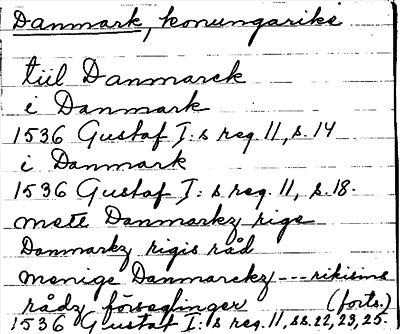 Danmark, konungarike
till Danmarck
i Danmark
1536 Gustaf I:s reg. 11, s. 14
i Danmark
1536 Gustaf I:s reg. 11, s. 18.
mett Danmarkz rige
Danmarkz rigis råd
menige Danmarckz --- rikisens
rådz förseglinger (forts.)
1536 Gustaf I:s reg. 11, ss. 22, 23, 25.